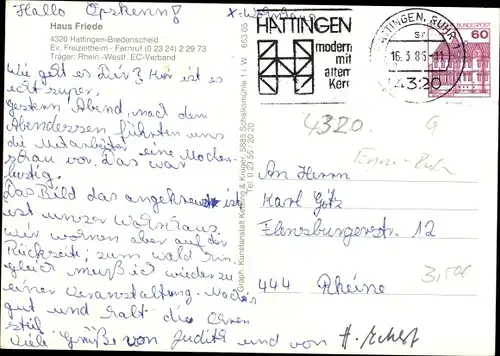 Hallo Opskenn!
X = Wohnhaus
Haus Friede
4320 Hattingen-Bredenscheid
Ev. Freizeitheim - Fernruf (0 23 24) 2 29 73
Träger: Rhein.-Westf. EC-Verband
Wie geht es Dir? Hier ist es
echt super,
gestern Abend, nach dem
Abendessen führten uns
die Mitarbeiter eine Moden-
schau vor. Das war
lustig.
Das Bild das angekreuzt ist
ist unser Wohnhaus.
Wir wohnen aber auf der
Rückseite, zum Wald hin.
gleich muß ich wieder zu
einer Veranstaltung. Mach's
gut und halt die Ohren
steif
Viele Grüße von Judith und von
Graph. Kunstanstalt Ketling & Krüger, 5885 Schalksmühle 1 i. W. 653 65
Tel. 0 23 55 - 20 20
HATTINGEN
modern
mit
altem
Kern
HATTINGEN, RUHR 1
16.3.85-11
4320
DEUTSCHE BUNDESPOST
60
4320
G
An Herrn
Karl Götz
Flensburgerstr. 12
444 Rheine
3,50€